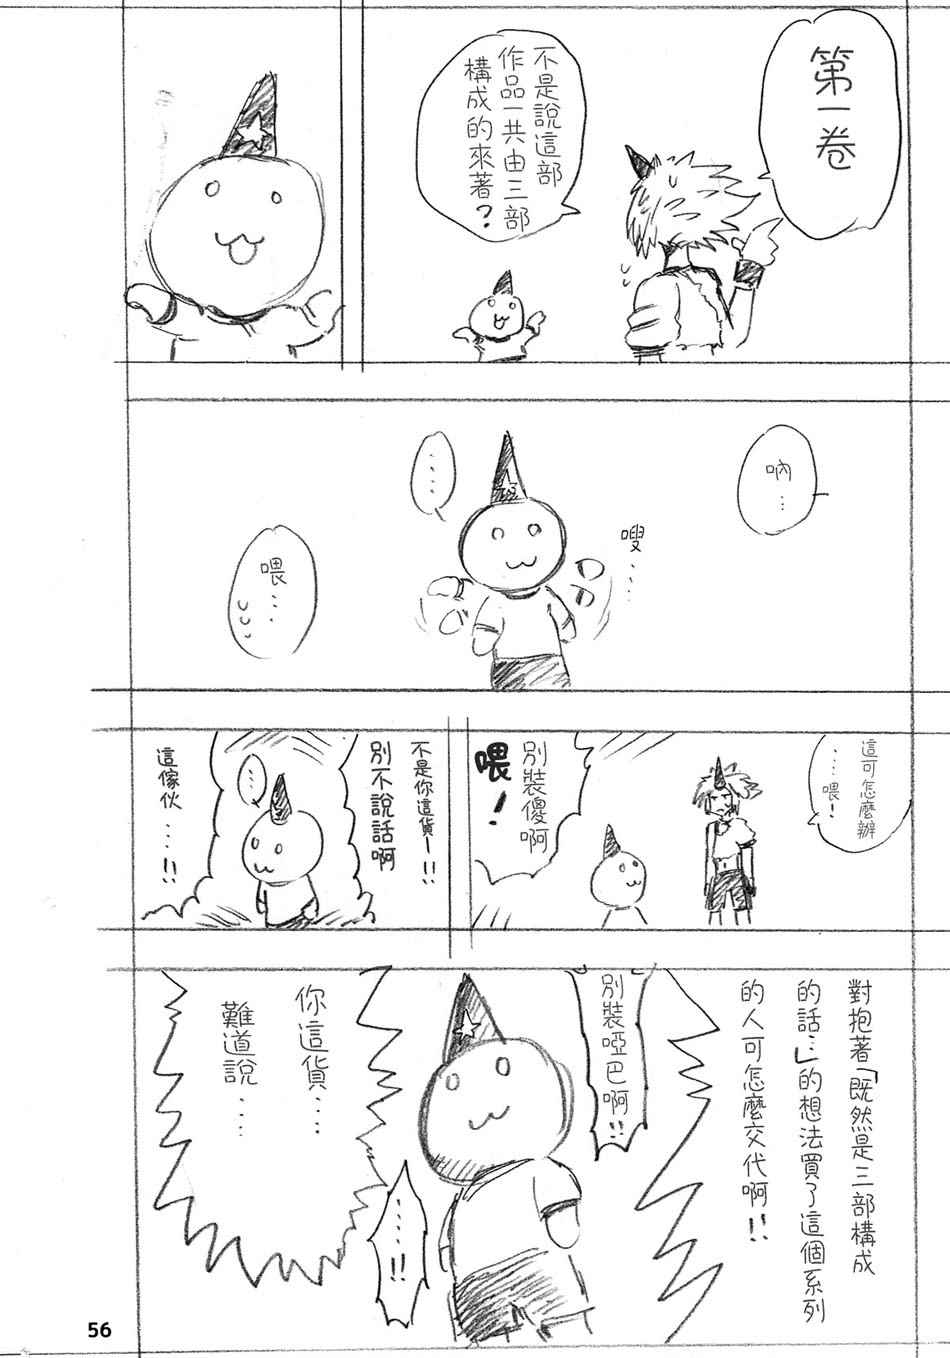 第一卷
不是說這部
作品一共由三部
構成的來著？
吶…
嗖……
……
喂……
這可怎麼辦
……喂！
別裝傻啊
喂！
不是你這貨一！！
別不說話啊
……
這傢伙……！！
對抱著「既然是三部構成
的話…」的想法買了這個系列
的人可怎麼交代啊！！
別裝啞巴啊！！
……！！
你這貨…
難道說……
56